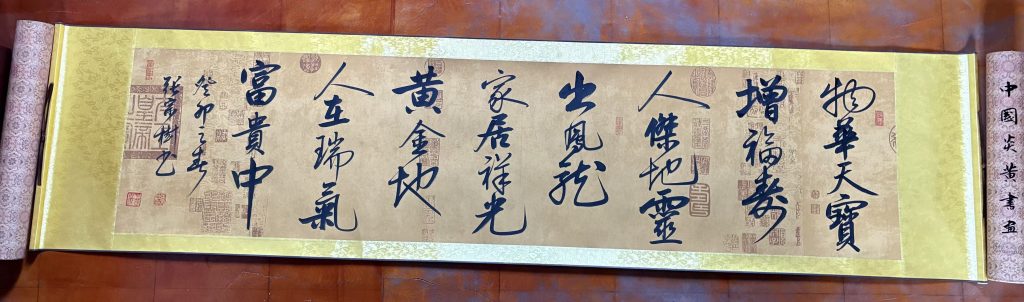 中國炎黄書畫
物華天寶
增福壽
人傑地靈
出鳳龍
家居祥光
黄金地
人在瑞氣
富貴中
癸卯之春